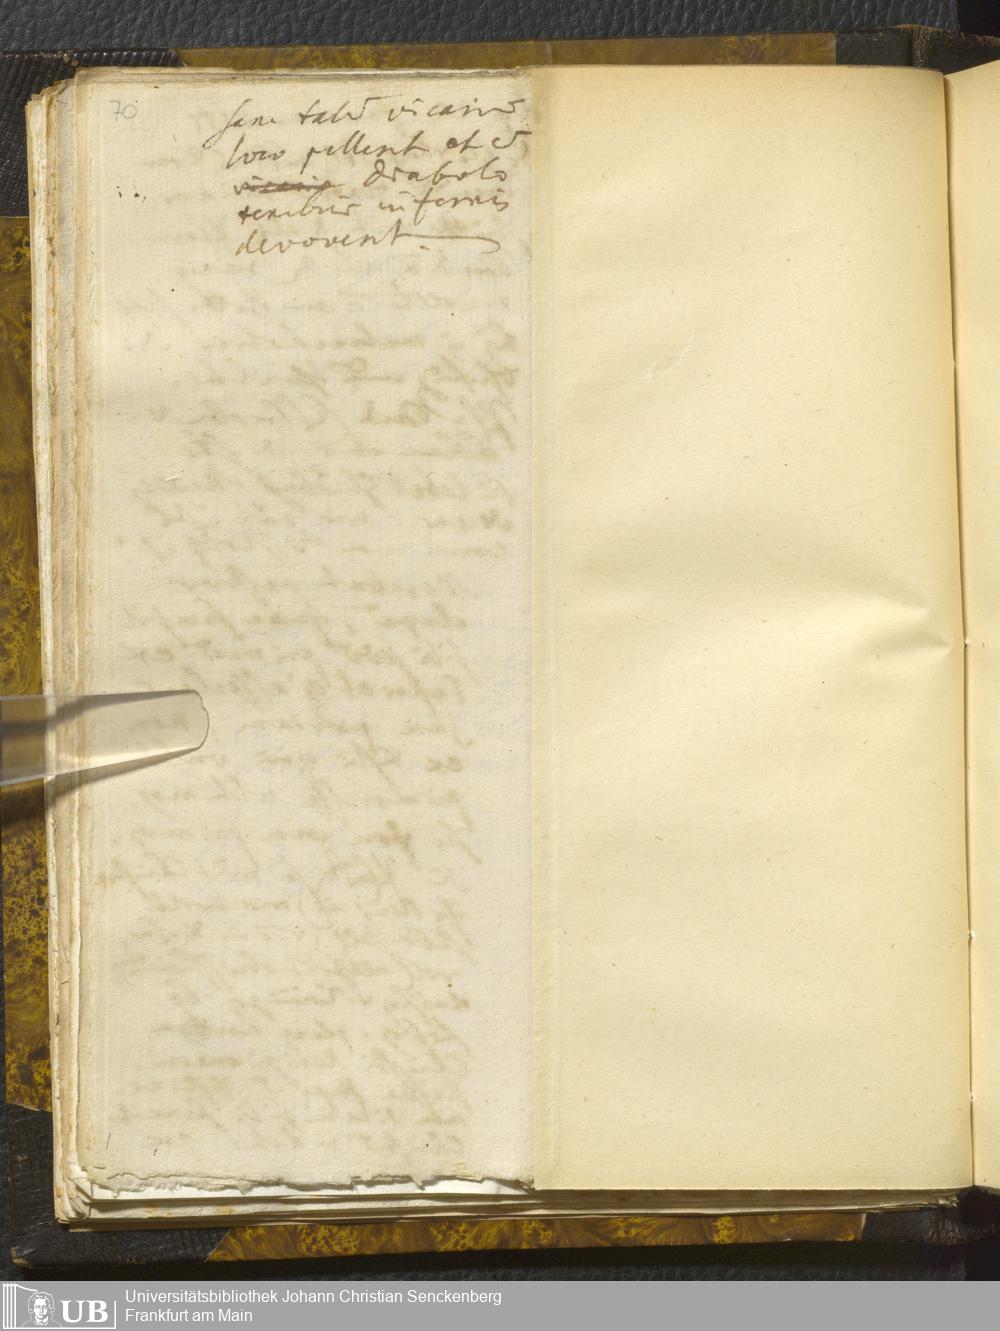 70
sane talē vicariū
loco pellent et cū
vicario diabolo
tenebris infernis
devovent.
UB
Universitätsbibliothek Johann Christian Senckenberg
Frankfurt am Main